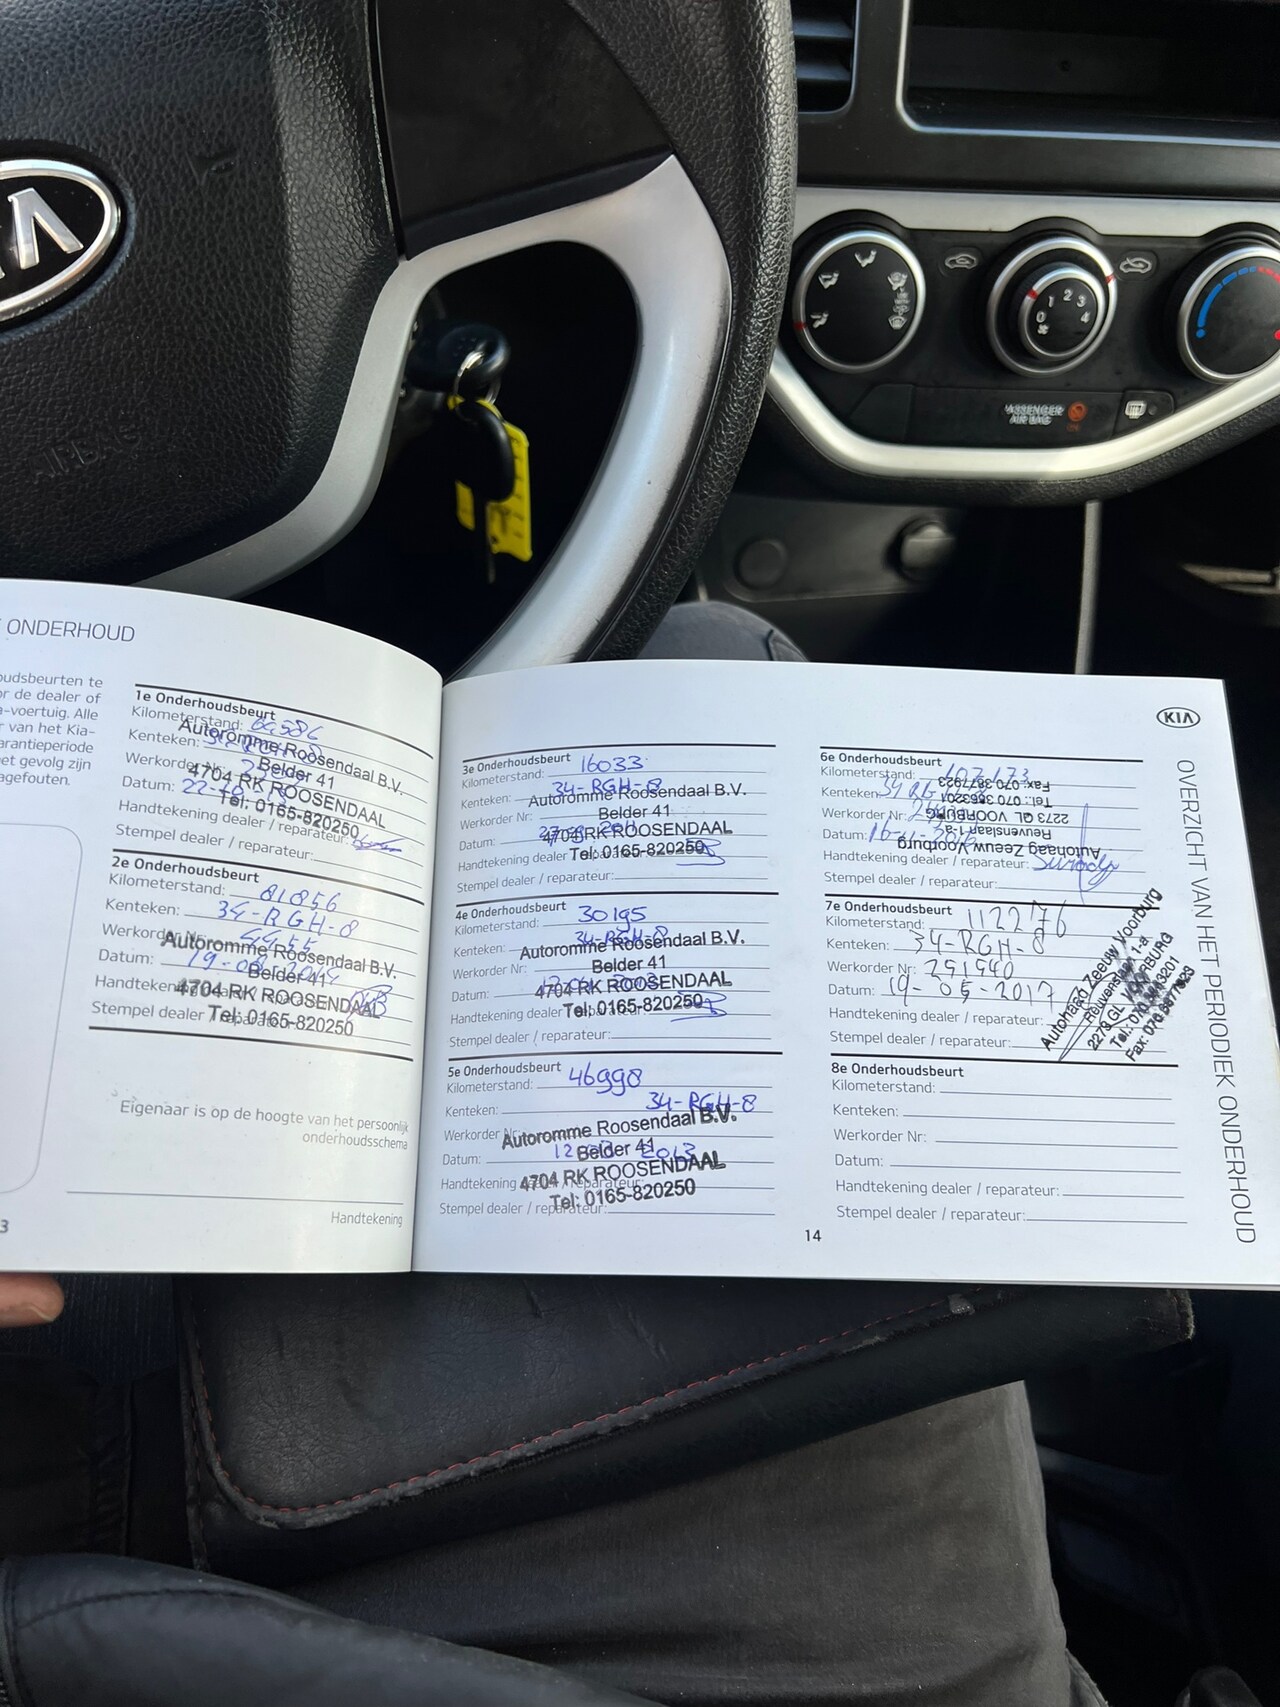 KIA
AIRBAG
0 1 2 3 4
PASSENGER
AIR BAG
ONDERHOUD
oudsbeurten te
or de dealer of
a-voertuig. Alle
r van het Kia-
arantieperiode
et gevolg zijn
agefouten.
1e Onderhoudsbeurt
Kilometerstand:
Kenteken:
Werkorder Nr:
Datum: 22-10
Handtekening dealer / reparateur:
Stempel dealer / reparateur:
Autoromme Roosendaal B.V.
Belder 41
4704 RK ROOSENDAAL
Tel: 0165-820250
2e Onderhoudsbeurt
Kilometerstand: 81856
Kenteken: 34-RGH-8
Werkorder Nr:
Datum:
Handtekening
Stempel dealer / reparateur:
Autoromme Roosendaal B.V.
Belder 41
4704 RK ROOSENDAAL
Tel: 0165-820250
Eigenaar is op de hoogte van het persoonlijk
onderhoudsschema
Handtekening
3
3e Onderhoudsbeurt
Kilometerstand: 16033
Kenteken: 34-RGH-8
Werkorder Nr:
Datum:
Handtekening dealer / reparateur:
Stempel dealer / reparateur:
Autoromme Roosendaal B.V.
Belder 41
4704 RK ROOSENDAAL
Tel: 0165-820250
4e Onderhoudsbeurt
Kilometerstand: 30195
Kenteken: 34-RGH-8
Werkorder Nr:
Datum:
Handtekening dealer / reparateur:
Stempel dealer / reparateur:
Autoromme Roosendaal B.V.
Belder 41
4704 RK ROOSENDAAL
Tel: 0165-820250
5e Onderhoudsbeurt
Kilometerstand: 46998
Kenteken: 34-RGH-8
Werkorder Nr:
Datum: 12 2013
Handtekening dealer / reparateur:
Stempel dealer / reparateur:
Autoromme Roosendaal B.V.
Belder 41
4704 RK ROOSENDAAL
Tel: 0165-820250
14
KIA
6e Onderhoudsbeurt
Kilometerstand: 102173
Kenteken: 34 RG
Werkorder Nr:
Datum: 16-11-
Handtekening dealer / reparateur:
Stempel dealer / reparateur:
Autohaag Zeeuw Voorburg
Reuvenslaan 1-a
2273 GL VOORBURG
Tel.: 070.3863201
Fax: 070.3877923
7e Onderhoudsbeurt
Kilometerstand: 112276
Kenteken: 34-RGH-8
Werkorder Nr: 291940
Datum: 19-05-2017
Handtekening dealer / reparateur:
Stempel dealer / reparateur:
Autohaag Zeeuw Voorburg
Reuvenslaan 1-a
2273 GL VOORBURG
Tel.: 070.3863201
Fax: 070.3877923
8e Onderhoudsbeurt
Kilometerstand:
Kenteken:
Werkorder Nr:
Datum:
Handtekening dealer / reparateur:
Stempel dealer / reparateur:
OVERZICHT VAN HET PERIODIEK ONDERHOUD